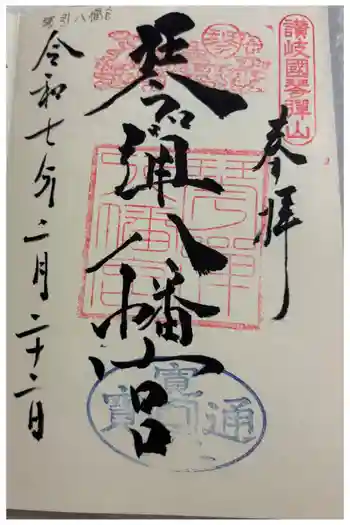 讃岐國琴彈山
奉拝
琴弾八幡宮
琴弾八幡宮
令和七年二月二十二日
寛
通
寳